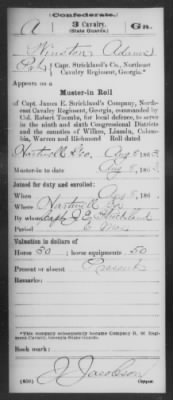 (Confederate.)
A 3 Cavalry. Ga.
(State Guards.)
Winston Adams
Capt. Strickland's Co., Northeast
Cavalry Regiment, Georgia.*
Appears on a
Muster-in Roll
of Capt. James E. Strickland's Company, North-
east Cavalry Regiment, Georgia, commanded by
Col. Robert Toombs, for local defense, to serve
in the ninth and sixth Congressional Districts
and the counties of Wilkes, Lincoln, Columbia,
Warren and Richmond Roll dated
Hartwell Ga. Aug 8, 1863.
Muster-in to date Aug 8, 1863.
Joined for duty and enrolled:
When Aug 8, 186
Where Hartwell Ga
By whom Capt J. E. Strickland
Period 6 Mos
Valuation in dollars of
Horse 50; horse equipments 50
Present or absent Present
Remarks:
*This company subsequently became Company
Cavalry, Georgia State Guards.
Book mark:
J. Jacobson
Copyist.